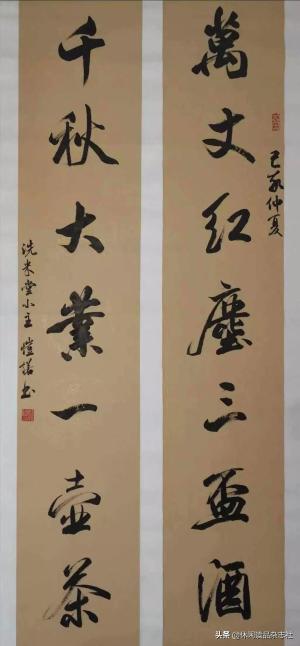 萬丈红塵三盃酒
己亥仲夏
千秋大業一壺茶
洗米堂小主 愷諾书
头条 @休闲读品杂志社